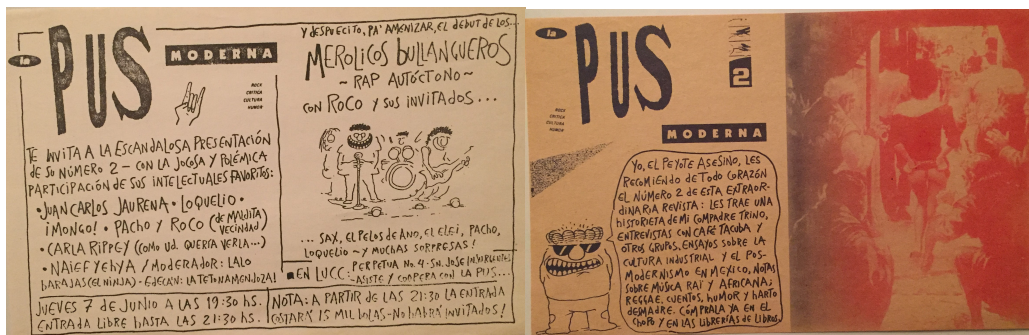 la
PUS
MODERNA
ROCK
CRITICA
CULTURA
HUMOR
TE INVITA A LA ESCANDALOSA PRESENTACIÓN
DE SU NÚMERO 2 – CON LA JOCOSA Y POLÉMICA
PARTICIPACIÓN DE SUS INTELECTUALES FAVORITOS:
• JUAN CARLOS JAURENA • LOQUELIO •
¡MONGO! • PACHO Y ROCO (DE MALDITA VECINDAD)
• CARLA RIPPEY (COMO UD. QUERÍA VERLA...)
• NAIEF YEHYA / MODERADOR: LALO
BARAJAS (EL NINJA) – EDECAN: LA TETONA MENDOZA!
JUEVES 7 DE JUNIO A LAS 19:30 hs.
ENTRADA LIBRE HASTA LAS 21:30 hs.
Y DESPUECITO, PA' AMENIZAR, EL DEBUT DE LOS...
MEROLICOS BULLANGUEROS
~ RAP AUTÓCTONO ~
CON ROCO Y SUS INVITADOS...
... SAX, EL PELOS DE ANO, EL ELEI, PACHO,
LOQUELIO ~ Y MUCHAS SORPRESAS!
EN LUCC: PERPETUA No. 4 • SN. JOSE INSURGENTES
– ASISTE Y COOPERA CON LA PUS...
NOTA: A PARTIR DE LAS 21:30 LA ENTRADA
COSTARÁ 15 MIL BOLAS – NO HABRÁ INVITADOS!
la
PUS
2
ROCK
CRITICA
CULTURA
HUMOR
MODERNA
YO, EL PEYOTE ASESINO, LES
RECOMIENDO DE TODO CORAZÓN
EL NÚMERO 2 DE ESTA EXTRAOR-
DINARIA REVISTA: LES TRAE UNA
HISTORIETA DE MI COMPADRE TRINO,
ENTREVISTAS CON CAFÉ TACUBA Y
OTROS GRUPOS, ENSAYOS SOBRE LA
CULTURA INDUSTRIAL Y EL POS-
MODERNISMO EN MÉXICO, NOTAS
SOBRE MÚSICA RAÏ Y AFRICANA;
REGGAE, CUENTOS, HUMOR Y HARTO
DESMADRE. CÓMPRALA YA EN EL
CHOPO Y EN LAS LIBRERÍAS DE LIBROS.